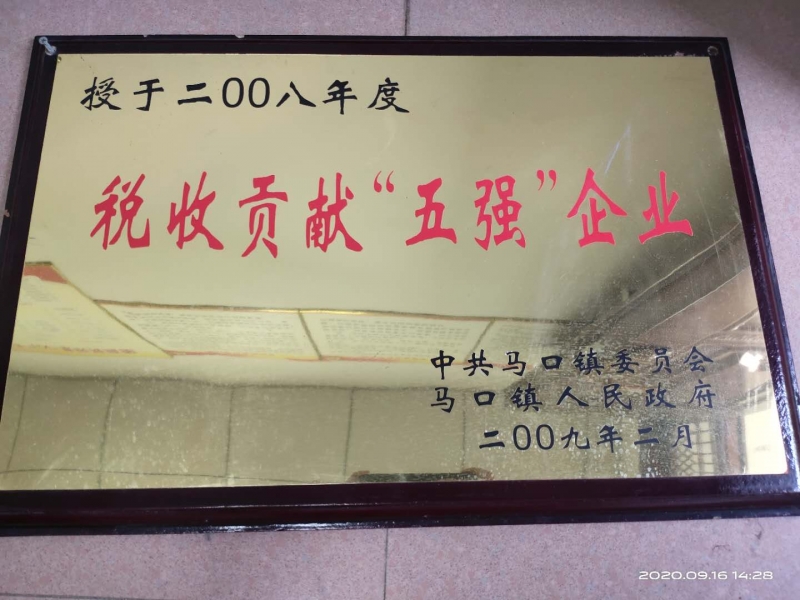 授于二00八年度
税收贡献“五强”企业
中共马口镇委员会
马口镇人民政府
二00九年二月
2020.09.16 14:28